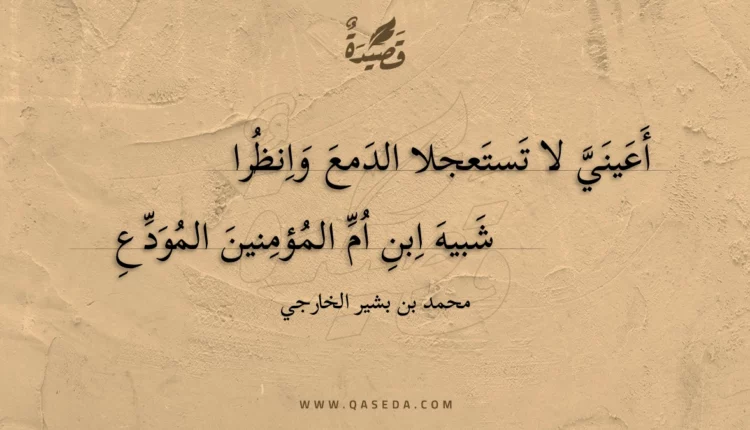 قَصِيْدَةٌ
أَعَينَيَّ لا تَستَعجلا الدَمعَ وَاِنظُرا
شَبيهَ اِبنِ اُمِّ المُؤمِنينَ المُوَدِّعِ
محمد بن بشير الخارجي
WWW.QASEDA.COM